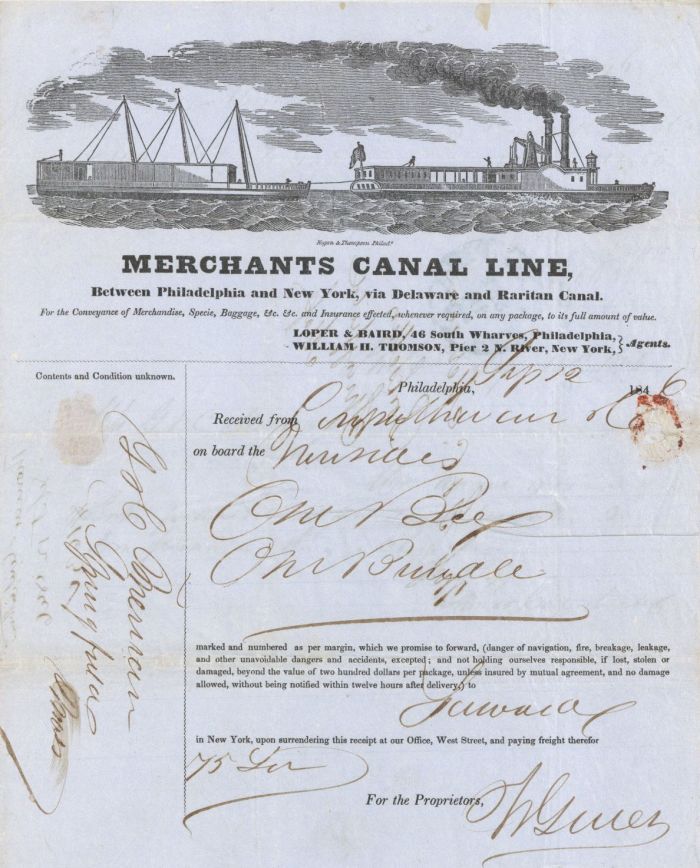 Hogan & Thompson Philada.
MERCHANTS CANAL LINE,
Between Philadelphia and New York, via Delaware and Raritan Canal.
For the Conveyance of Merchandise, Specie, Baggage, &c. &c. and Insurance effected, whenever required, on any package, to its full amount of value.
LOPER & BAIRD, 46 South Wharves, Philadelphia,
WILLIAM H. THOMSON, Pier 2 N. River, New York, } Agents.
Contents and Condition unknown.
Philadelphia, Sep 12 1846
Received from
on board the
One
One Bundle
marked and numbered as per margin, which we promise to forward, (danger of navigation, fire, breakage, leakage,
and other unavoidable dangers and accidents, excepted; and not holding ourselves responsible, if lost, stolen or
damaged, beyond the value of two hundred dollars per package, unless insured by mutual agreement, and no damage
allowed, without being notified within twelve hours after delivery,) to
in New York, upon surrendering this receipt at our Office, West Street, and paying freight therefor
75
For the Proprietors,
Springfield